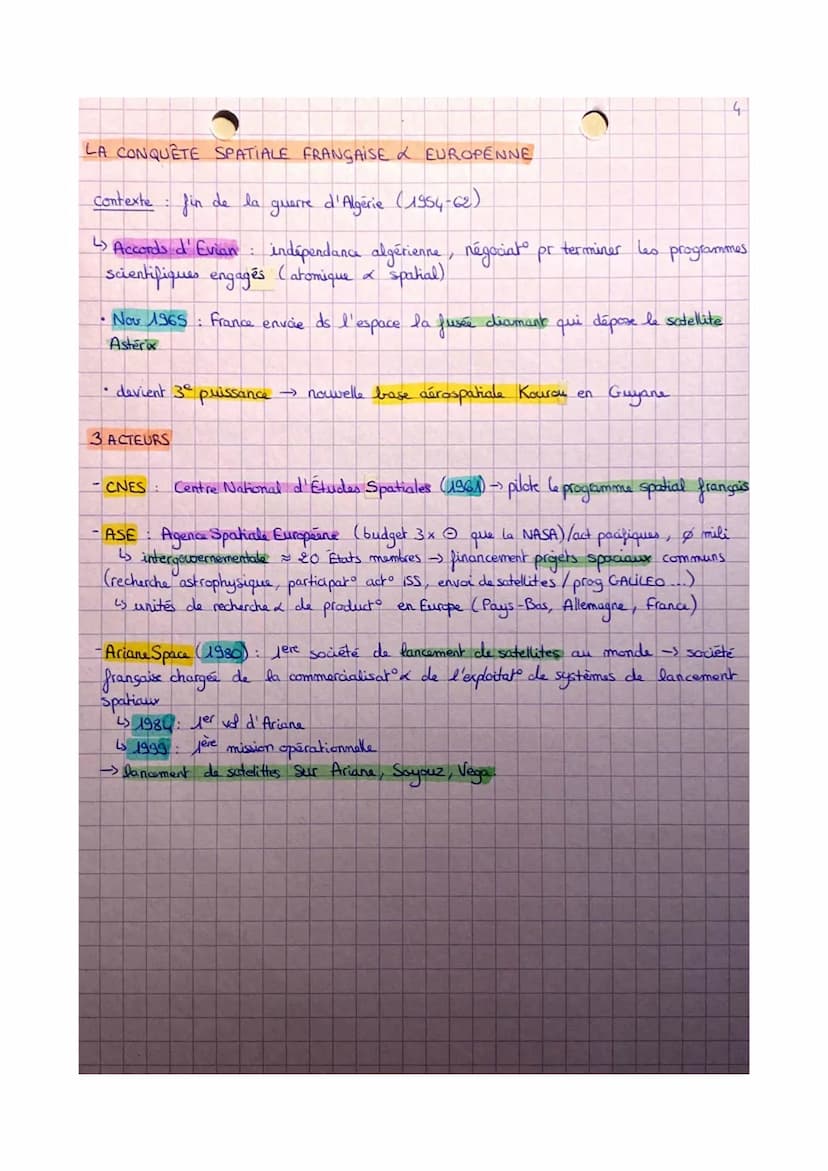 4
LA CONQUÊTE SPATIALE FRANÇAISE & EUROPÉNNE
Contexte : fin de la guerre d'Algérie (1954-62)
↳ Accords d'Evian : indépendance algérienne, négociat° pr terminer les programmes
scientifiques engagés (atomique & spatial)
• Nov 1965 : France envoie ds l'espace la fusée diamant qui dépose le satellite
Astérix
• devient 3e puissance → nouvelle base aérospatiale Kourou en Guyane
3 ACTEURS
- CNES : Centre National d'Études Spatiales (1961) → pilote le progamme spatial français
- ASE : Agence Spatiale Européane (budget 3x ⊖ que la NASA)/act pacifiques, ∅ mili
↳ intergouvernementale ≈ 20 États membres → financement projets spaciaux communs
(recherche astrophysique, participat° act° ISS, envoi de satellites / prog GALILEO...)
↳ unités de recherche & de product° en Europe (Pays-Bas, Allemagne, France)
- ArianeSpace (1980) : 1ere société de lancement de satellites au monde → société
française chargée de la commercialisat° & de l'exploitat° de systèmes de lancement
spatiaux
↳ 1984 : 1er vol d'Ariane
↳ 1999 : 1ère mission opérationnelle
→ lancement de satelittes sur Ariane, Soyouz, Vega.